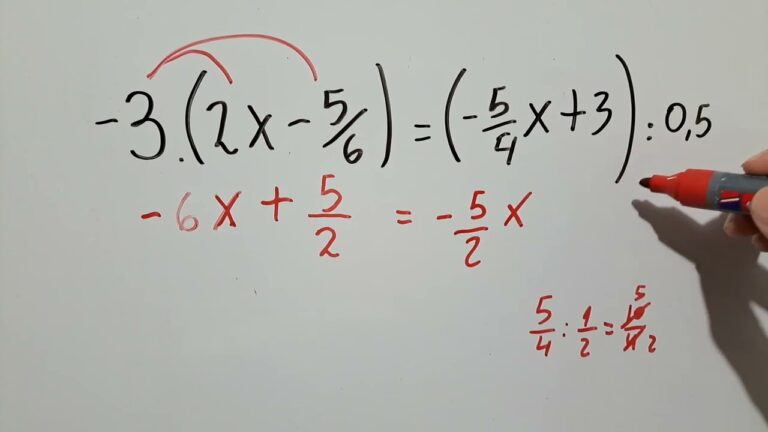 -3.(2x - 5/6) = (-5/4 x + 3) : 0,5
-6x + 5/2 = -5/2 x
5/4 : 1/2 = 10/4 5/2